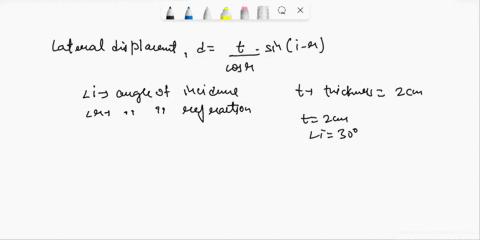 Lateral displacent, d = t/cosr . sin(i-r)
∠i→ angle of incidence
∠r→ ,, ,, refraction
t→ thickness = 2cm
t = 2cm
∠i = 30°